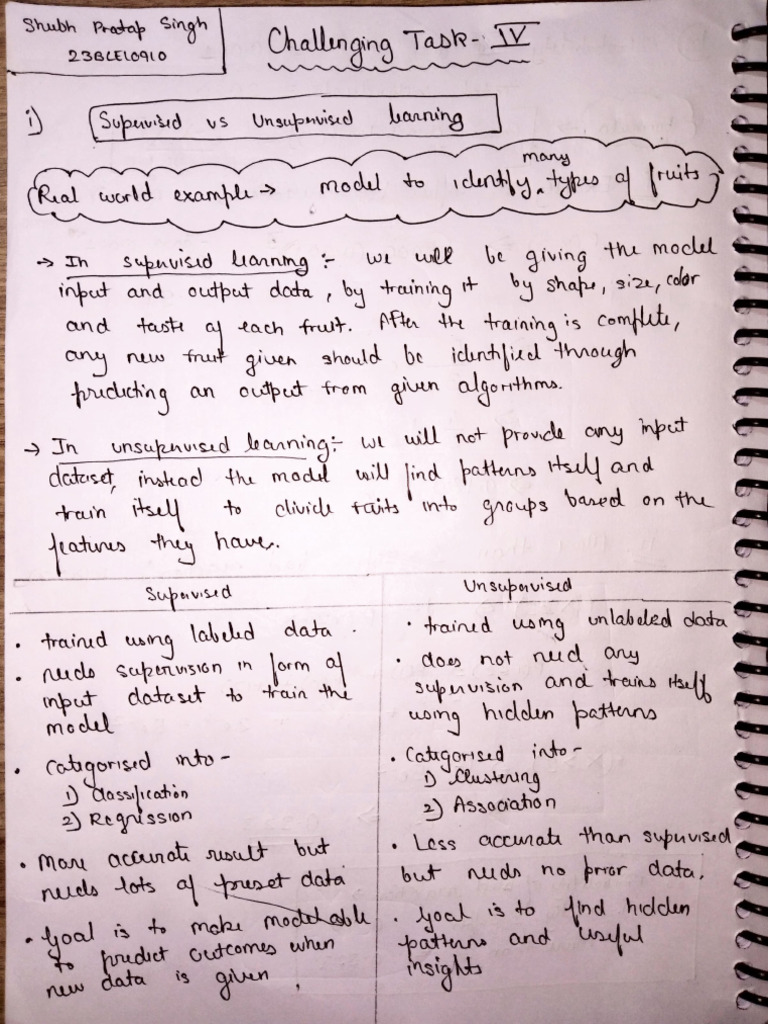 Shubh Pratap Singh
23BCE10910
Challenging Task - IV
i) Supervised vs Unsupervised learning
many
Real world example → model to identify ^ types of fruits
→ In supervised learning :- we will be giving the model
input and output data, by training it by shape, size, color
and taste of each fruit. After the training is complete,
any new fruit given should be identified through
predicting an output from given algorithms.
→ In unsupervised learning:- we will not provide any input
dataset, instead the model will find patterns itself and
train itself to divide fruits into groups based on the
features they have.
Supervised
• trained using labeled data.
• needs supervision in form of
input dataset to train the
model
• Categorised into -
1) Classification
2) Regression
• More accurate result but
needs lots of preset data
• Goal is to make model able
to predict outcomes when
new data is given.
Unsupervised
• trained using unlabeled data
• does not need any
supervision and trains itself
using hidden patterns
• Categorised into -
1) Clustering
2) Association
• Less accurate than supervised
but needs no prior data.
• Goal is to find hidden
patterns and useful
insights